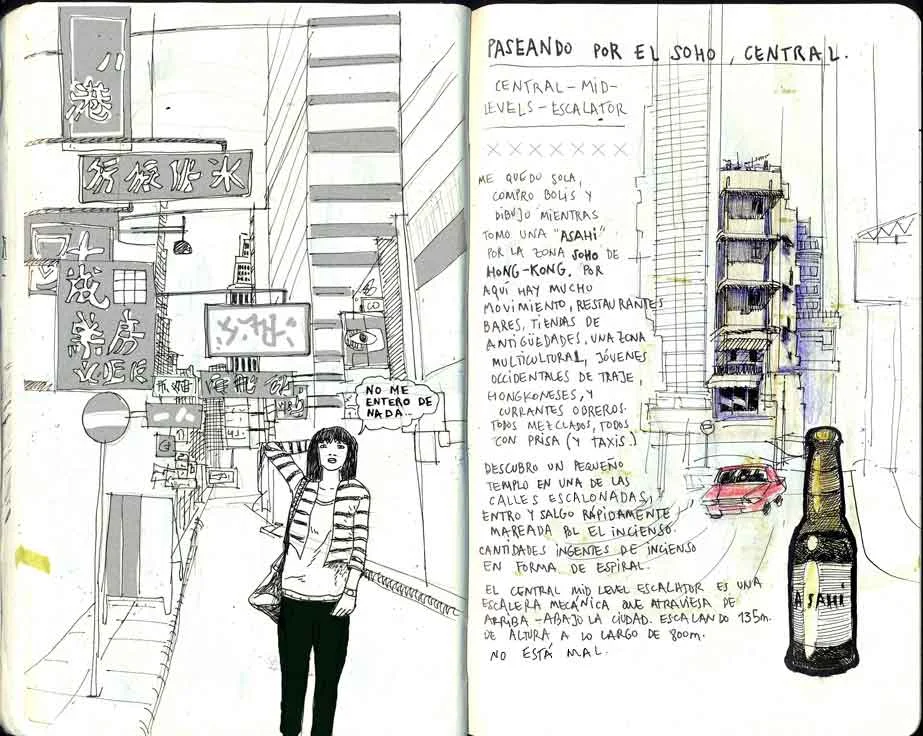 港
NO ME
ENTERO DE
NADA...
ASAHI
PASEANDO POR EL SOHO, CENTRAL.
CENTRAL-MID-
LEVELS-ESCALATOR
ME QUEDO SOLA,
COMPRO BOLIS Y
DIBUJO MIENTRAS
TOMO UNA "ASAHI"
POR LA ZONA SOHO DE
HONG-KONG. POR
AQUÍ HAY MUCHO
MOVIMIENTO, RESTAURANTES
BARES, TIENDAS DE
ANTIGÜEDADES, UNA ZONA
MULTICULTURAL, JÓVENES
OCCIDENTALES DE TRAJE,
HONGKONESES, Y
CURRANTES OBREROS.
TODOS MEZCLADOS, TODOS
CON PRISA (Y TAXIS.)
DESCUBRO UN PEQUEÑO
TEMPLO EN UNA DE LAS
CALLES ESCALONADAS,
ENTRO Y SALGO RÁPIDAMENTE
MAREADA POR EL INCIENSO.
CANTIDADES INGENTES DE INCIENSO
EN FORMA DE ESPIRAL.
EL CENTRAL MID LEVEL ESCALATOR ES UNA
ESCALERA MECÁNICA QUE ATRAVIESA DE
ARRIBA-ABAJO LA CIUDAD. ESCALANDO 135m.
DE ALTURA A LO LARGO DE 800m.
NO ESTÁ MAL.